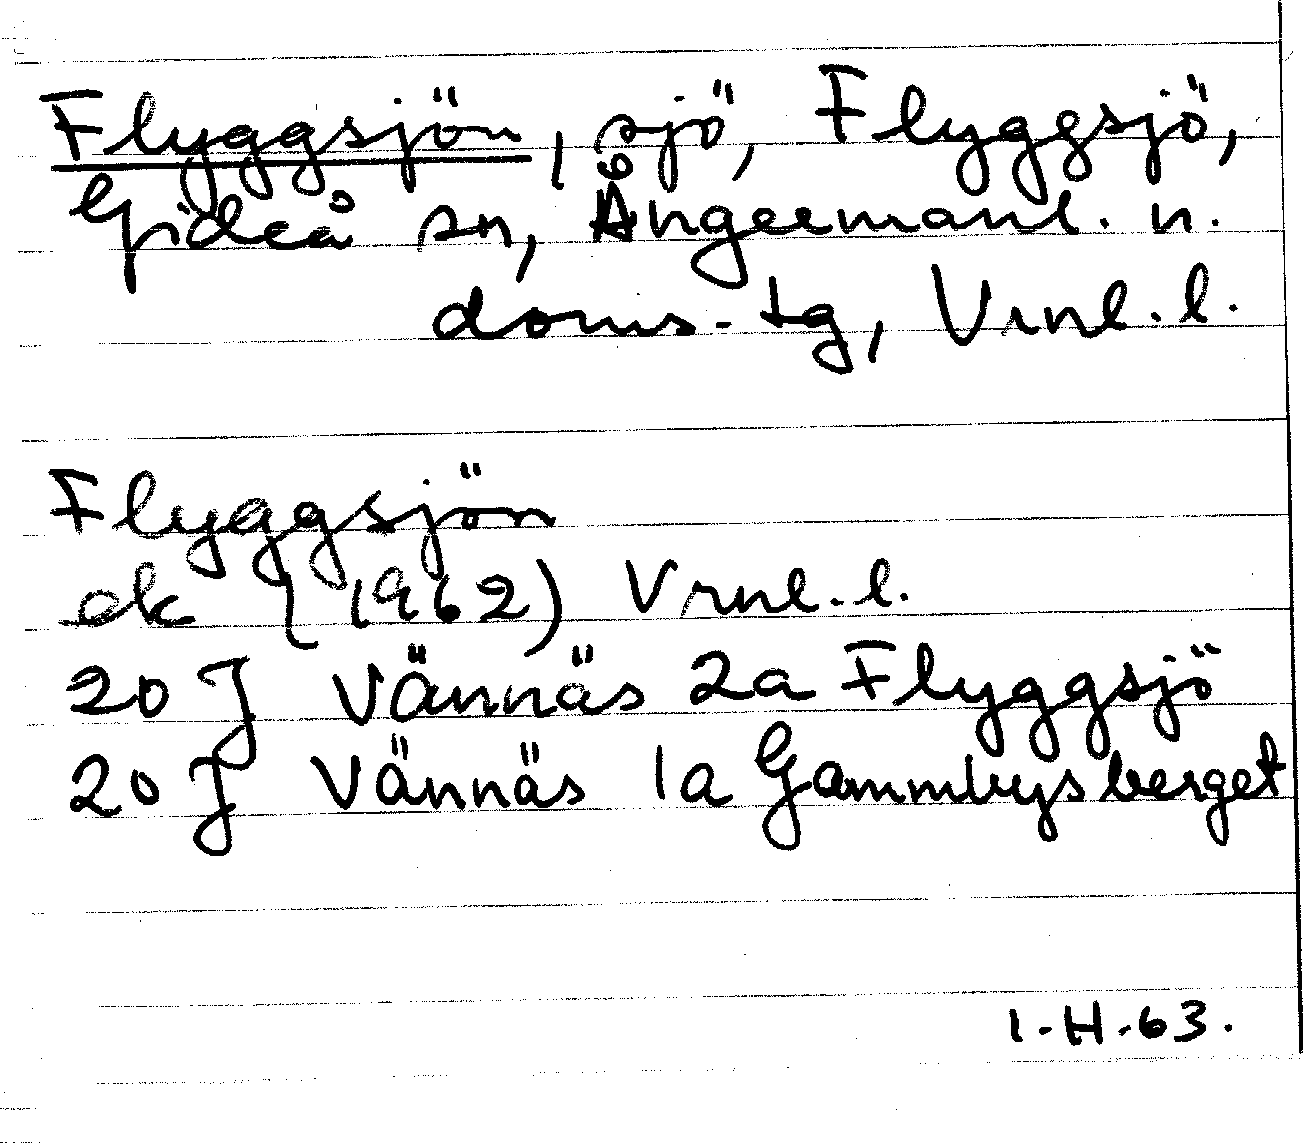 Flyggsjön, sjö, Flyggsjö,
Gideå sn, Ångermanl. n.
doms. tg, Vrnl. l.
Flyggsjön
ek (1962) Vrnl. l.
20 J Vännäs 2a Flyggsjö
20 J Vännäs 1a Gammbysberget
1.H.63.